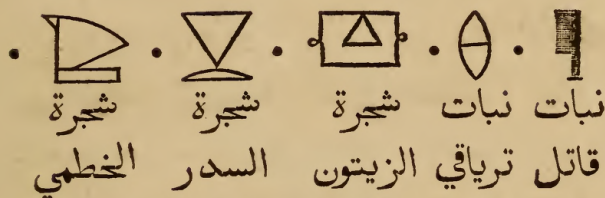 نبات نبات شجرة شجرة شجرة
قاتل ترياقي الزيتون السدر الخطمي